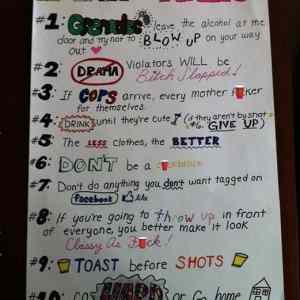 #1: Grenades leave the alcohol at the
door and try not to BLOW UP on your way
out
#2: DRAMA Violators WILL be
Bitch Slapped!
#3: If COPS arrive, every mother f ker
for themselves.
#4: DRINK until they're cute (if they aren't by shot
#6, GIVE UP)
#5: The LESS Clothes, the BETTER
#6: DON'T be a
#7: Don't do anything you don't want tagged on
facebook
#8: If you're going to throw up in front
of everyone, you better make it look
Classy As F ck!
#9: TOAST before SHOTS
#10: GO HARD or Go home